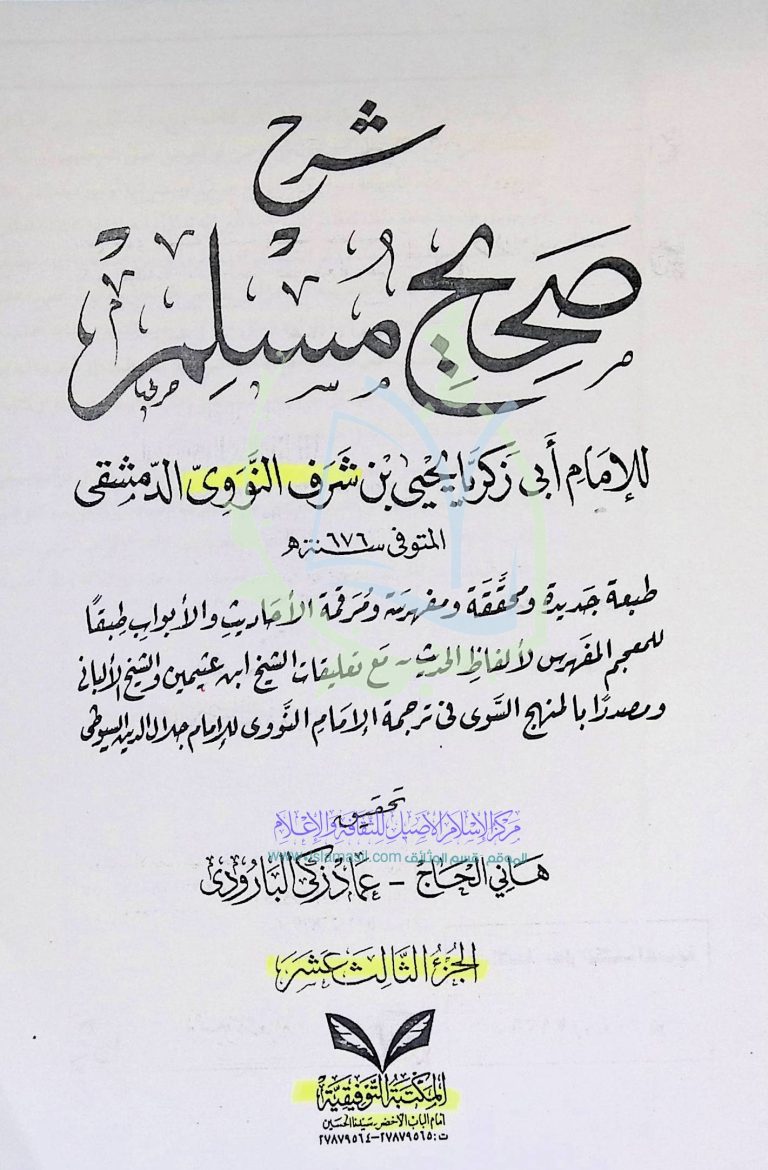 شرح
صَحِيحِ مُسْلِمْ
للإمَامِ أَبى زَكَرِيَّا يَحْيَى بْنِ شَرَف النَّوَوِىّ الدّمشقى
المتوفى سنة ٦٧٦ ھ
طبعة جَديدة ومحقَّقة ومفهرسة ومُرقمة الأحاديثِ والأبوابِ طِبقًا
للمعجم المفَهرس لألفاظِ الحديث - مَع تعليقات الشيخ ابن عثيمين والشيخ الألبانى
ومصدرًا بالمنهج السَّوى فى ترجمة الإمَامِ النَّووى للإمام جلال الدين السيوطى
تحقيق
مركز الإسلام الأصيل للثقافة والإعلام
الموقع : قسم الوثائق www.islamasil.com
هَاني الحَاجّ - عمَاد زَكىَ البَارودى
الجُزءُ الثَّالِثَ عَشَرَ
المكتبَة التَّوفيقيَّة
أمام الباب الأخضر - سيدنا الحسين
ت : ٢٧٨٧٩٥٦٥-٢٧٨٧٩٥٦٤